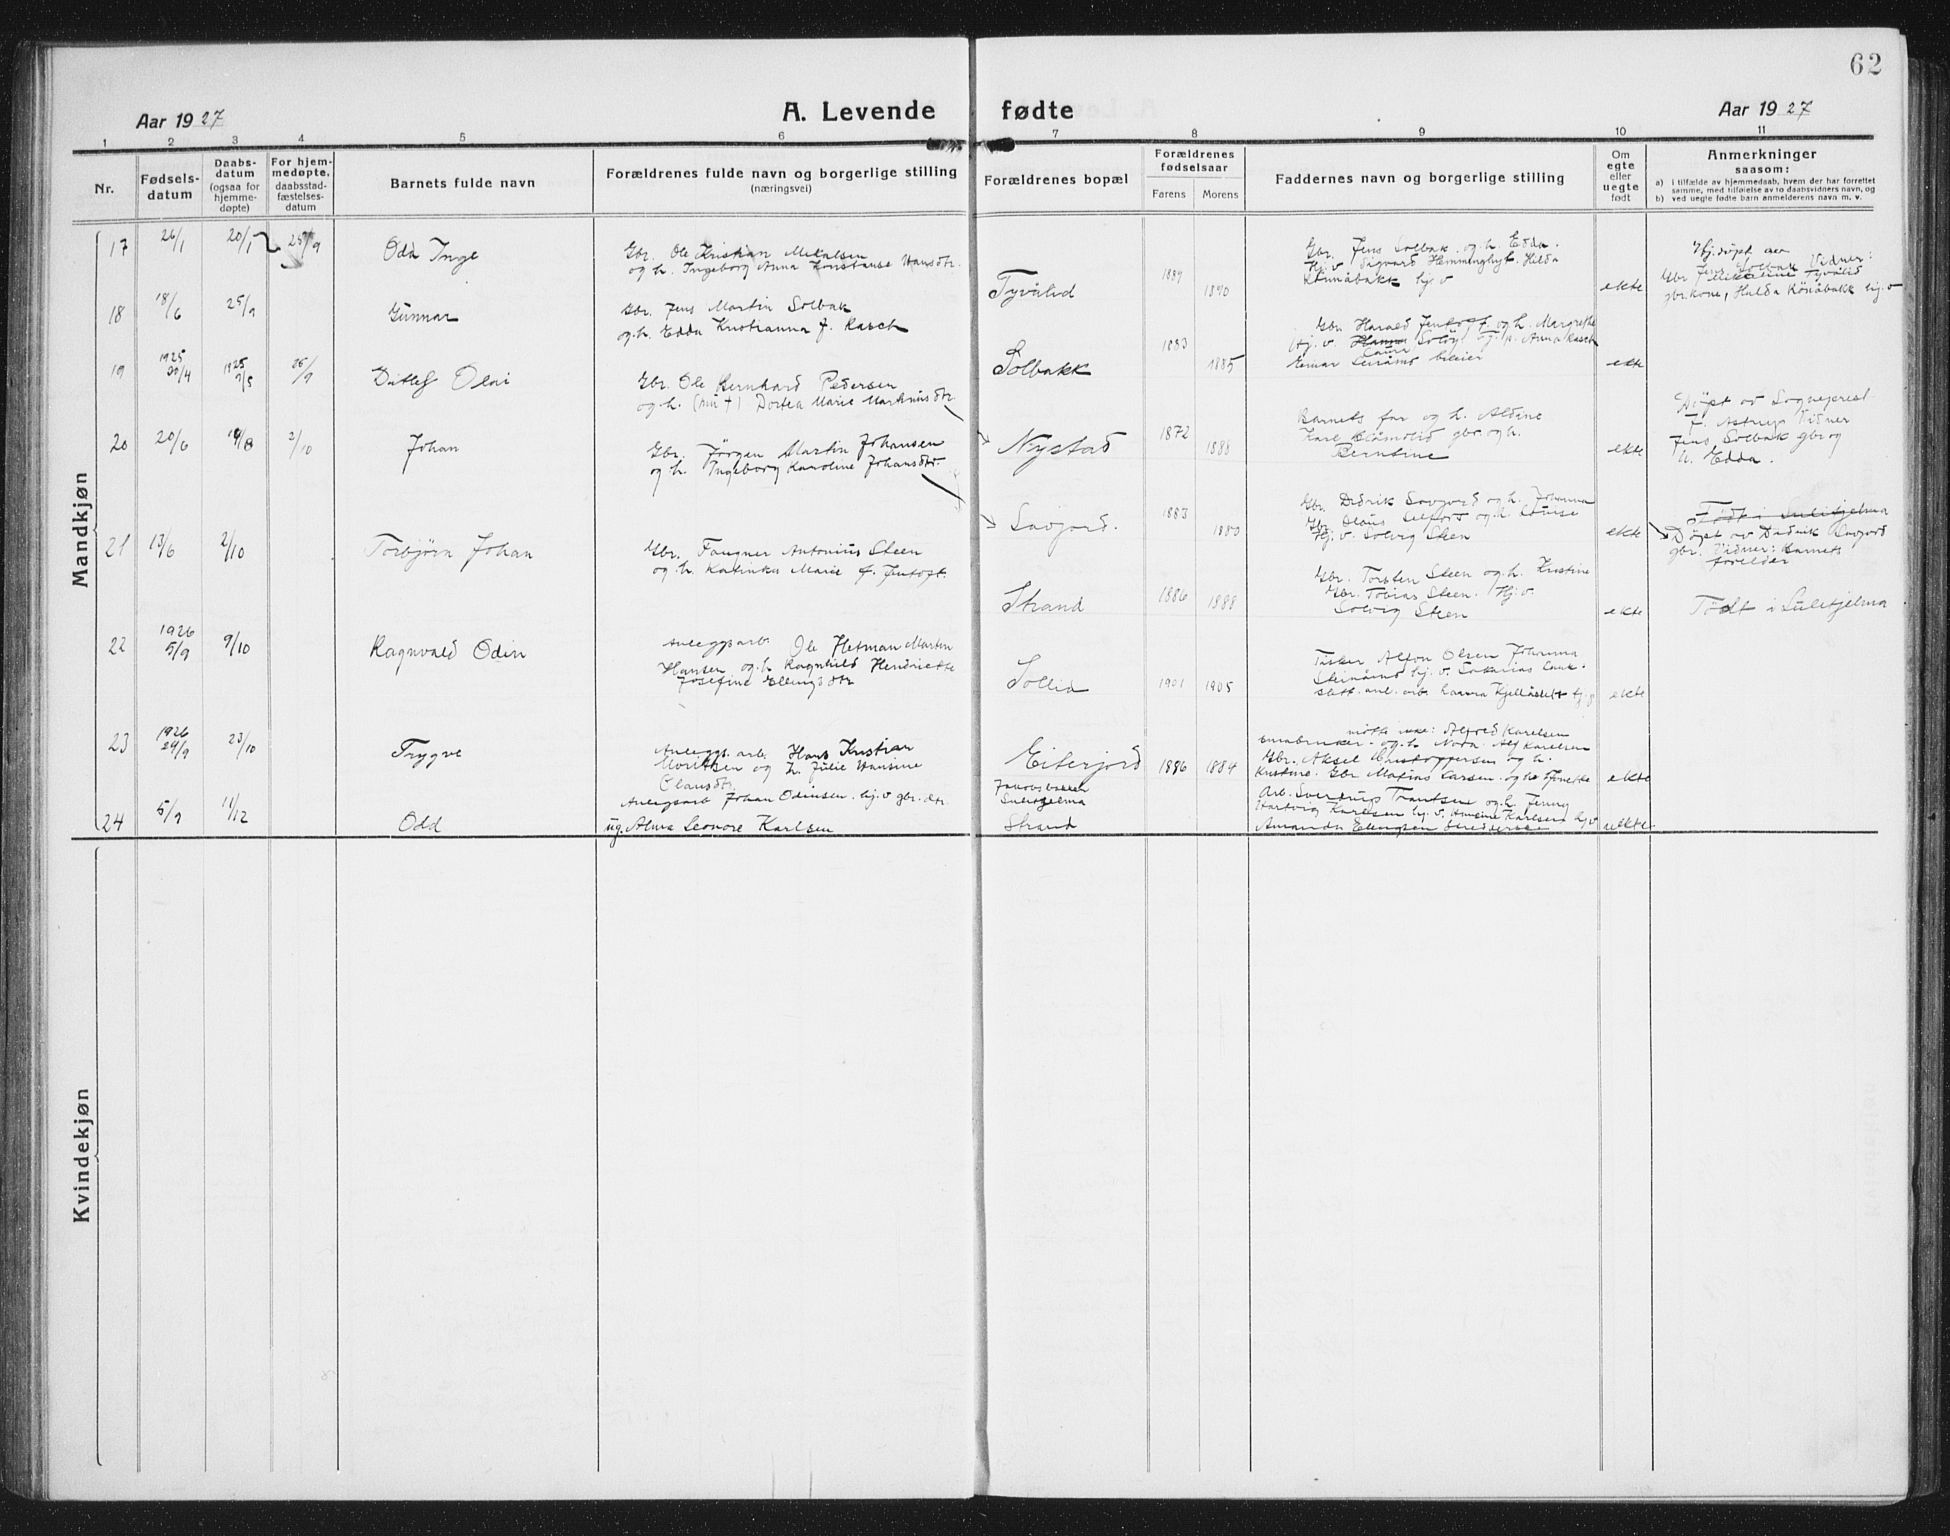 62
Aar 1927
A. Levende fødte
Aar 1927
1 2 3 4 5 6 7 8 9 10 11
Nr.
Fødsels-
datum
Daabs-
datum
(ogsaa for
hjemme-
døpte)
For hjem-
medøpte,
daabsstad-
fæstelses-
datum
Barnets fulde navn
Forældrenes fulde navn og borgerlige stilling
(næringsvei)
Forældrenes bopæl
Forældrenes
fødselsaar
Farens
Morens
Faddernes navn og borgerlige stilling
Om
egte
eller
uegte
født
Anmerkninger
saasom:
a) i tilfælde av hjemmedaab, hvem der har forrettet
samme, med tilføielse av to daabsvidners navn, og
b) ved uegte fødte barn anmelderens navn m. v.
Mandkjøn
17 26/1 20/1 25/9 Odd Inge
Gbr. Ole Kristian Mikalsen
og h. Ingeborg Anna Konstanse Hansdtr.
Tyvålid 1889 1890
Gbr. Jens Solbak og h. Edda.
Hj. v Sigvard Hemminghyt. Hilda
hj. v
ekte
Hj. døpt av
Gbr Jens Solbak Vidner:
Tyvålid
gbr. kone, Hulda hj. v
18 18/6 25/9 Gunnar
Gbr. Jens Martin Solbak
og h. Edda Kristianna f. Rasch
Solbakk 1883 1885
Gbr. Harald Jentoft og h. Margrethe
Hj. v. Hanna
Laura
Anna Rasch
Einar
ekte
19 1925 30/4 1925 7/5 25/9 Ditlef Olai
Gbr. Ole Bernhard Pedersen
og h. (nu †) Dortea Marie Markusdtr.
Nystad 1872 1888
Barnets far og h. Aldine
Kare gbr. og h.
Berntine
ekte
Døpt av Sogneprest
F. Astrup Vidner
Jens Solbak gbr og
h. Edda.
20 20/6 19/8 2/10 Johan
Gbr. Jørgen Martin Johansen
og h. Ingeborg Karoline Johansdtr.
Savjord. 1883 1880
Gbr. Didrik Savjord og h. Johanna
Gbr. Olaus og h. Lovise
Hj. v. Solvig Steen
ekte
Født i Sulitjelma
Døpt av Didrik Savjord
gbr. Vidner: Barnets
forelder
21 13/6 2/10 Torbjørn Johan
Gbr. Fangner Antonius Steen
og h. Katinka Marie f. Jentoft.
Strand 1886 1888
Gbr. Torsten Steen og h. Kristine
Gbr. Tobias Steen. Hj. v
Solvig Steen
ekte
Født i Sulitjelma
22 1926 5/9 9/10 Ragnvald Odin
Anleggsarb. Ole Hetman Martin
Hansen og h. Ragnhild Hendriette
Josefine Ellingsdtr
Sollid 1901 1905
Fisker Alfon Olsen Johanna
hj. v. Sakarias
anl. arb.
ekte
23 1926 29/9 23/10 Trygve
Anleggs. arb. Hans Kristian
Moritsen og h. Julie Hansine
Olausdtr.
Eiterjord 1886 1884
møtte ikke: Alfred Karelsen
småbruker og h. Nora. Alf Karelsen
Gbr. Aksel Kristoffersen og h.
Kristine. Gbr Matias Larsen og h
ekte
24 5/9 11/12 Odd
Anlegsarb Johan Odinsen. hj. v gbr. dtr.
ug. Alma Leonore Karlsen
Jakobsbakken
Sulitjelma
Strand
Arb. Sverdrup og h. Jenny
Hartvig Karlsen hj. v. Karlsen hj. v
Amanda Ellingsen
uekte
Kvindekjøn